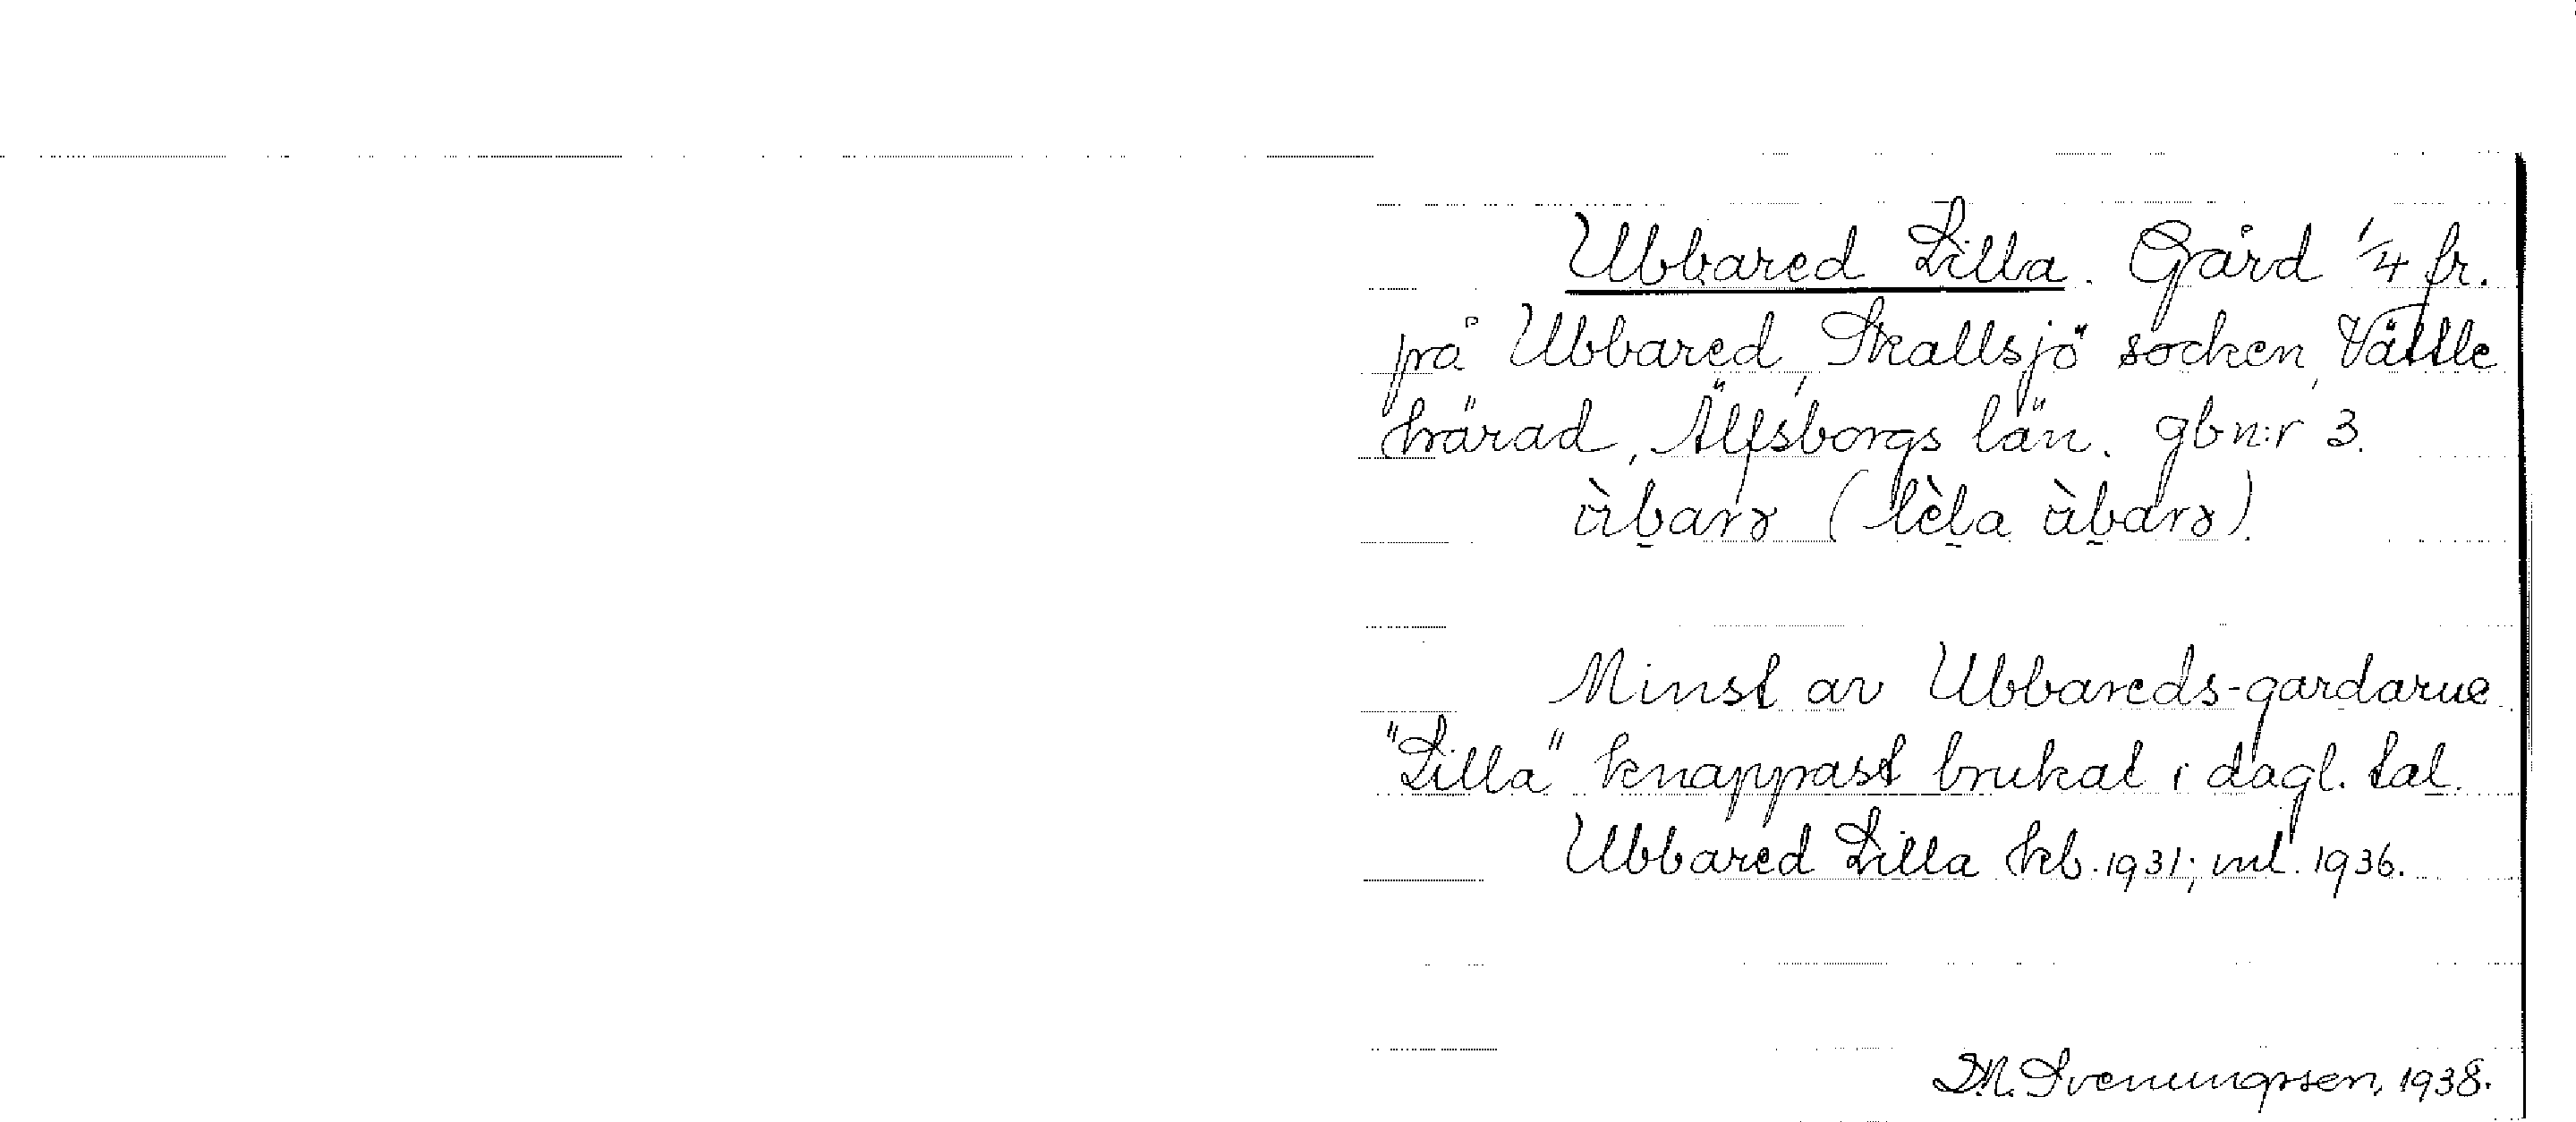 Ubbared Lilla. Gård 1/4 fr.
på Ubbared, Skallsjö socken, Vättle
härad, Älfsborgs län. gbn:r 3.
(lèla
Minst av Ubbareds-gardarne
"Lilla" knappast brukat i dagl. tal.
Ubbared Lilla kb. 1931; ml. 1936.
D.N. Sveningsson, 1938.